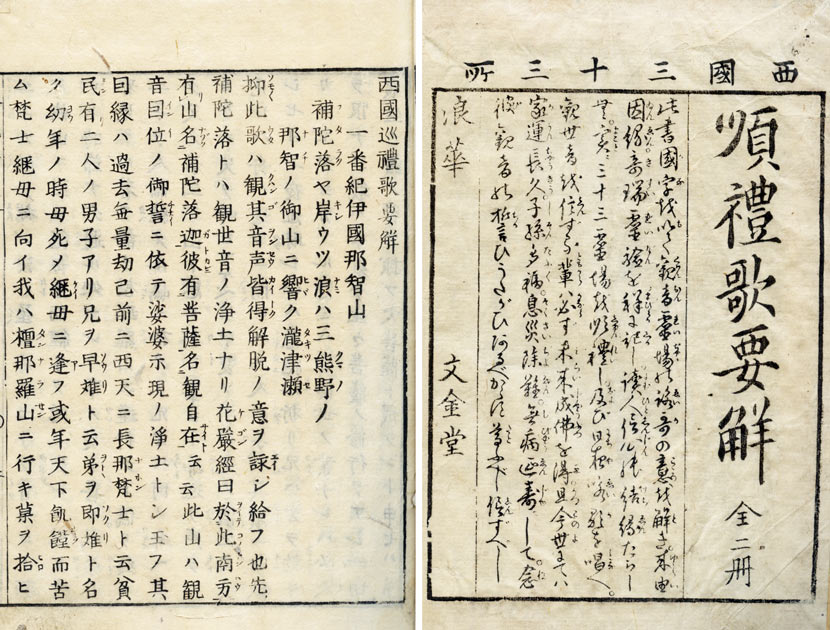 西國三十三所
順禮歌要觧 全二冊
此書國字を以て観音霊場の詠哥の意を解き本由
因縁奇瑞霊驗を詳に記し讀人信心 結縁たらし
実に三十三霊場を順禮し及び日夜詠歌を唱へ
観世音を信ずる輩必ず未来成佛を得且今世にてハ
家運長久子孫多福息災除難無病延壽にして念
彼観音の ひうたがひあるべからず尊べし信ずべし
浪華 文金堂
西國巡禮歌要觧
一番紀伊國那智山
補陀落ヤ岸ウツ浪ハ三熊野ノ
那智ノ御山ニ響ク瀧津瀬
抑此歌ハ観其音声皆得解脱ノ意ヲ詠ジ給フ也先
補陀落トハ観世音ノ浄土ナリ花嚴經曰於此南方
有山名補陀落迦彼有菩薩名観自在云云此山ハ観
音因位ノ御誓ニ依テ娑婆示現浄土トシ玉フ其
因縁ハ過去無量劫已前ニ西天ニ長那梵士ト云貧
民有二人ノ男子アリ兄ヲ早離ト云弟ヲ即離ト名
ク幼年ノ時母死メ継母ニ逢フ或年天下飢饉而苦
ム梵士継母ニ向イ我ハ檀那羅山ニ行キ菓ヲ拾ヒ